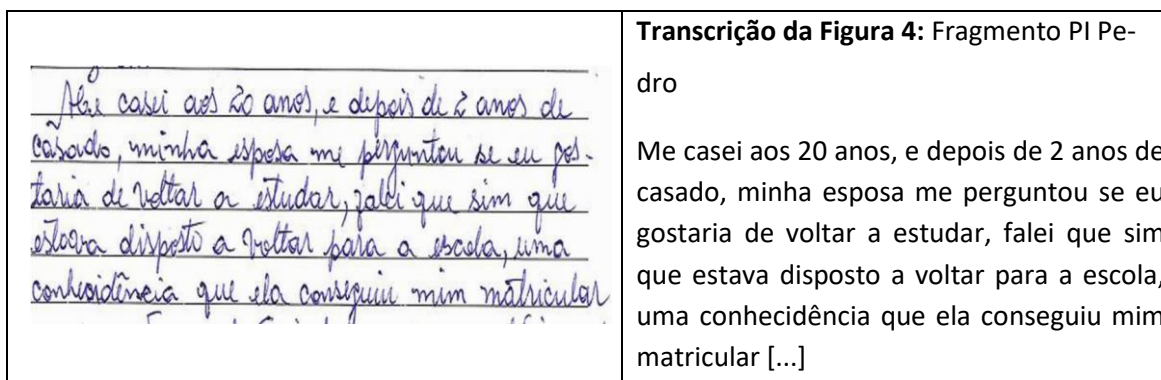 Me casei aos 20 anos, e depois de 2 anos de
casado, minha esposa me perguntou se eu gos-
taria de voltar a estudar, falei que sim que
estava disposto a voltar para a escola, uma
conhecidência que ela conseguiu mim matricular
Transcrição da Figura 4: Fragmento PI Pe-
dro
Me casei aos 20 anos, e depois de 2 anos de
casado, minha esposa me perguntou se eu
gostaria de voltar a estudar, falei que sim
que estava disposto a voltar para a escola,
uma conhecidência que ela conseguiu mim
matricular [...]